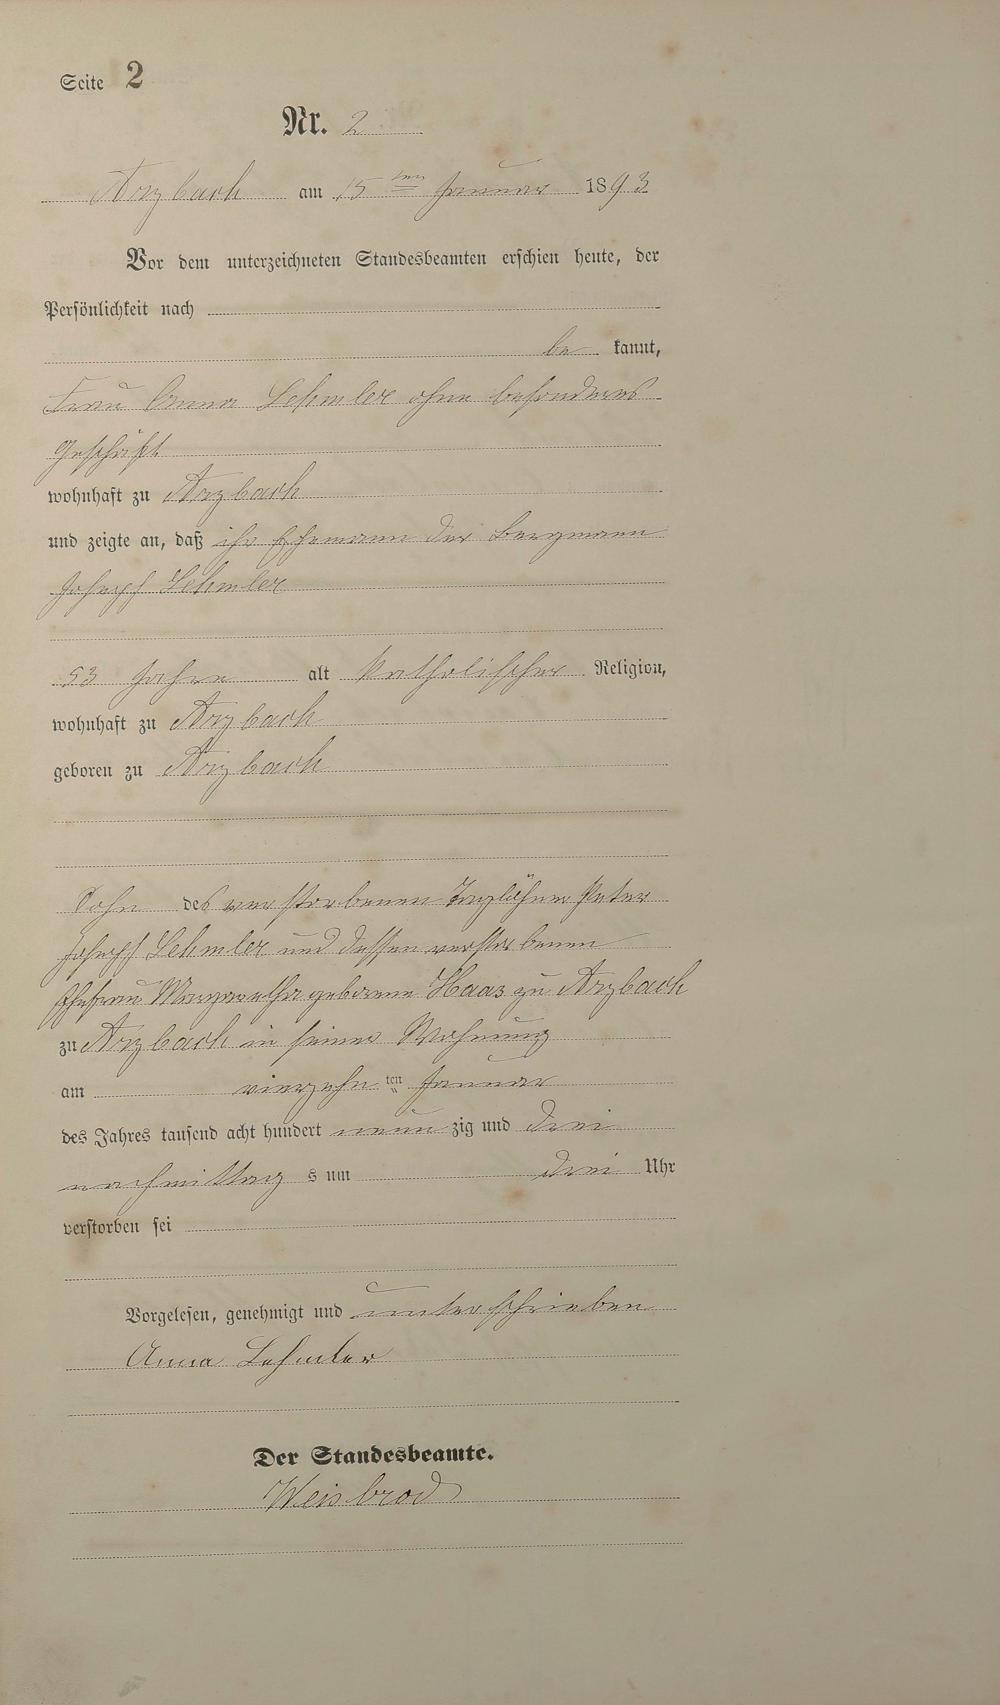 Seite 2
Nr. 2
Arzbach am 15ten Januar 1893
Vor dem unterzeichneten Standesbeamten erschien heute, der
Persönlichkeit nach
be kannt,
Frau Anna Lehmler ohne besonderes
Geschäft
wohnhaft zu Arzbach
und zeigte an, daß ihr Ehemann der Bergmann
Joseph Lehmler
53 Jahre alt katholischer Religion,
wohnhaft zu Arzbach
geboren zu Arzbach
Sohn des verstorbenen Taglöhner Peter
Joseph Lehmler und dessen verstorbenen
Ehefrau Margaretha geborene Haas zu Arzbach
zu Arzbach in seiner Wohnung
am vierzehn ten Januar
des Jahres tausend acht hundert neun zig und drei
nachmittag s um drei Uhr
verstorben sei
Vorgelesen, genehmigt und unterschrieben
Anna Lehmler
Der Standesbeamte.
Weisbrod